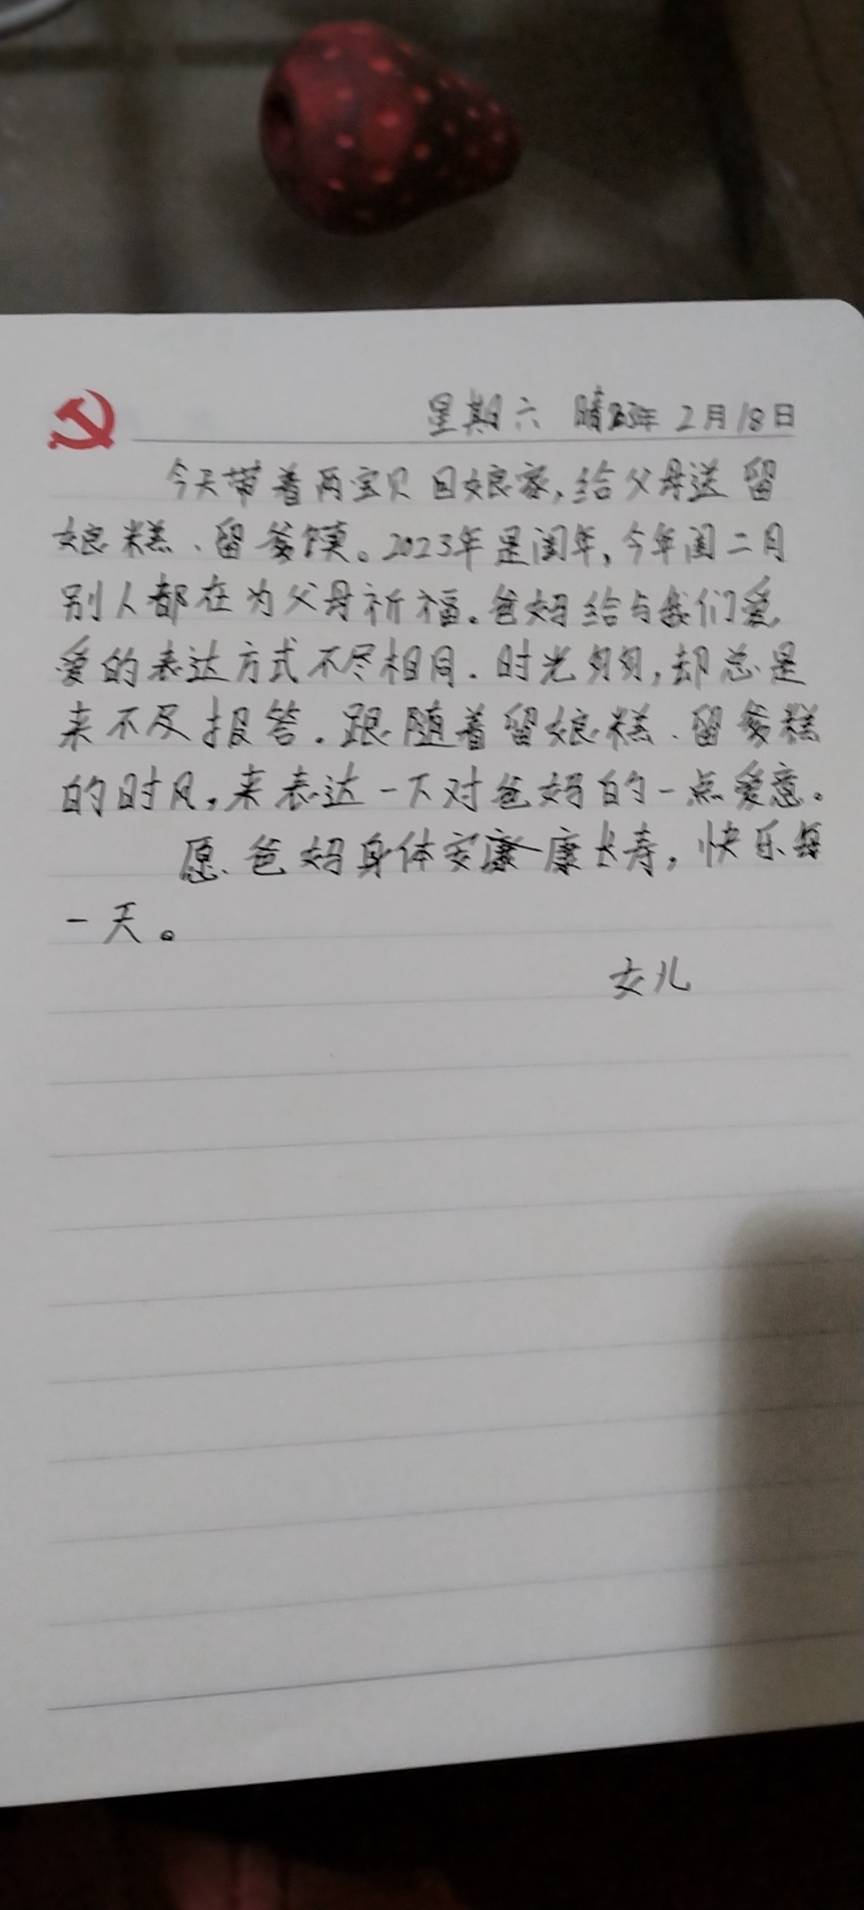 星期六 晴 23年 2月18日
今天带着两宝贝回娘家,给父母送留
娘糕、留爹馍。2023年是闰年,今年闰二月
别人都在为父母祈福。爸妈给与我们爱,
爱的表达方式不尽相同.时光匆匆,却总是
来不及报答。跟随着留娘糕、留爹糕
的时风,来表达一下对爸妈的一点爱意。
愿、爸妈身体安康康长寿,快乐每
一天。
女儿